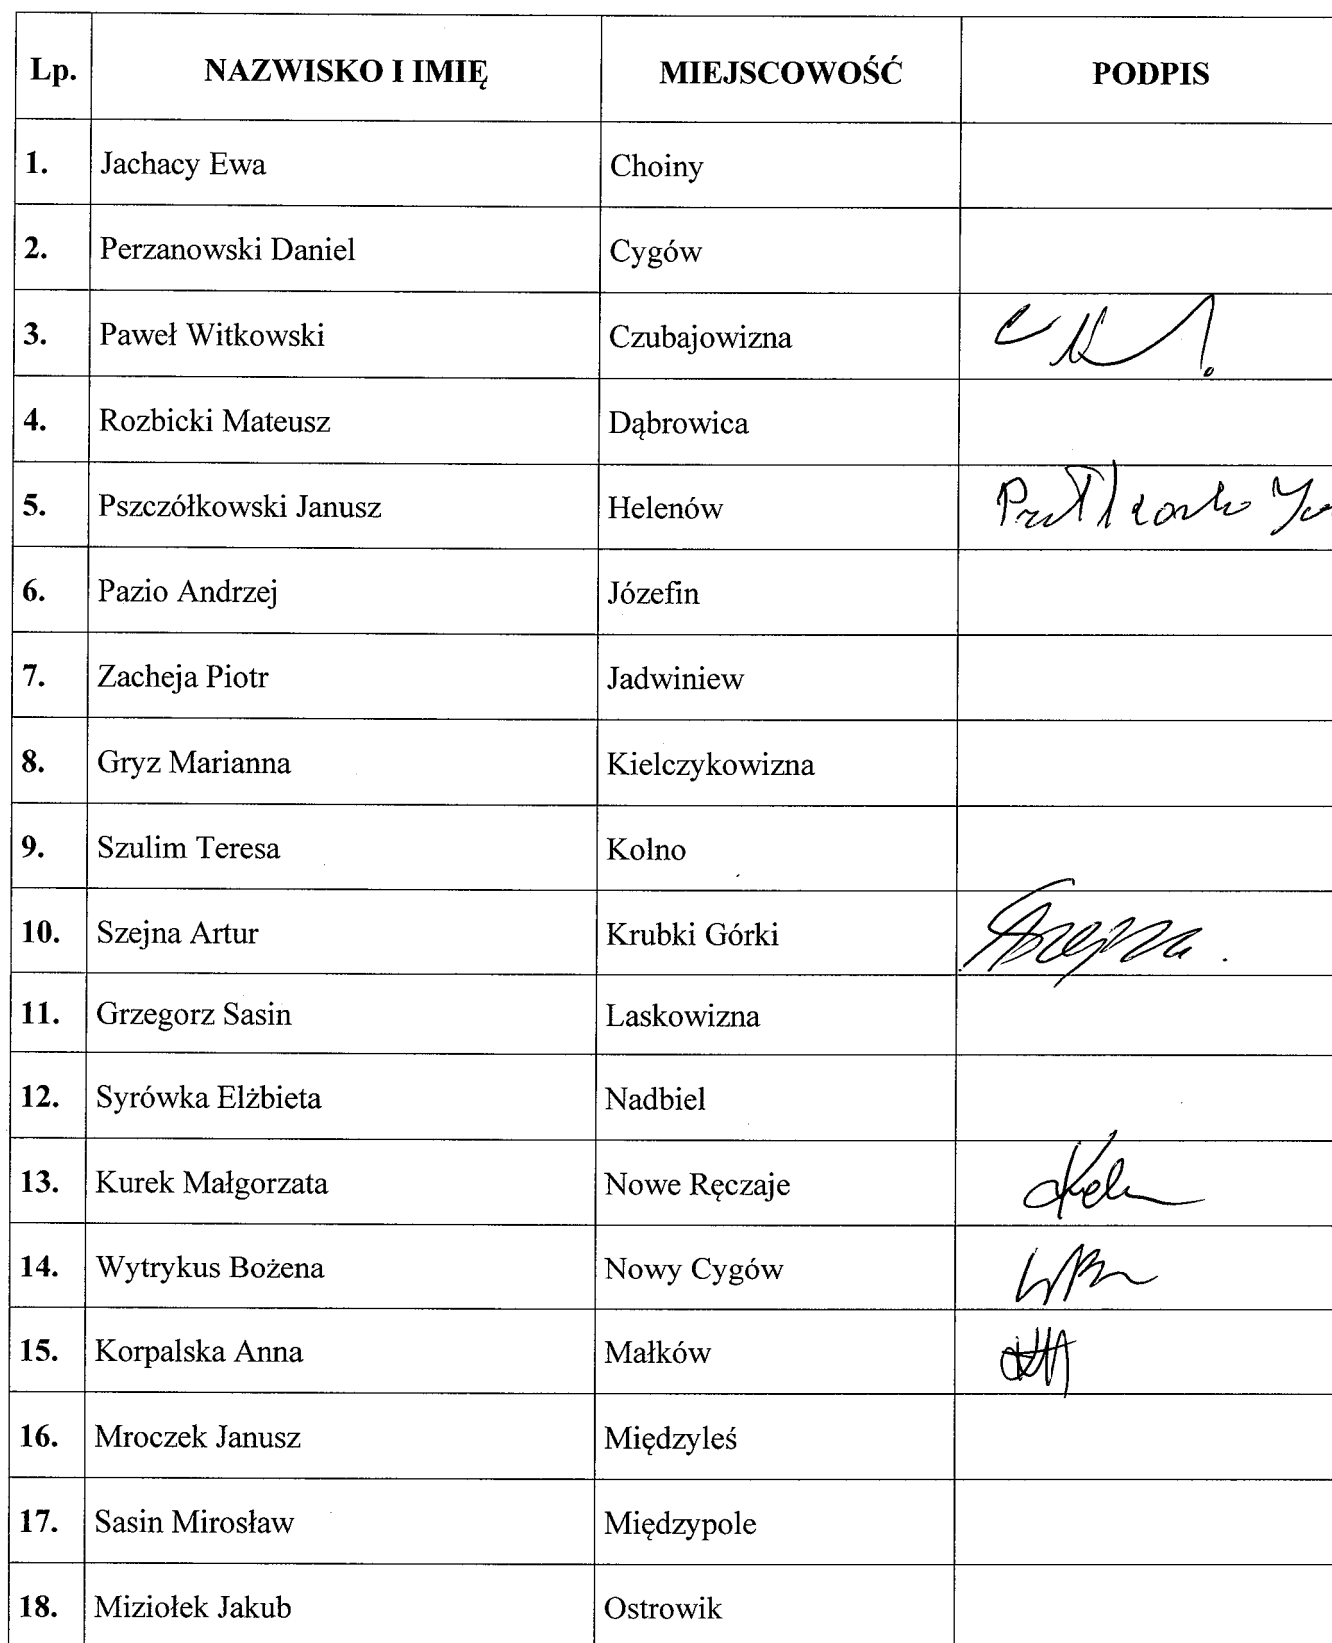 Lp. NAZWISKO I IMIĘ MIEJSCOWOŚĆ PODPIS
1. Jachacy Ewa Choiny
2. Perzanowski Daniel Cygów
3. Paweł Witkowski Czubajowizna
4. Rozbicki Mateusz Dąbrowica
5. Pszczółkowski Janusz Helenów
6. Pazio Andrzej Józefin
7. Zacheja Piotr Jadwiniew
8. Gryz Marianna Kielczykowizna
9. Szulim Teresa Kolno
10. Szejna Artur Krubki Górki
11. Grzegorz Sasin Laskowizna
12. Syrówka Elżbieta Nadbiel
13. Kurek Małgorzata Nowe Ręczaje
14. Wytrykus Bożena Nowy Cygów
15. Korpalska Anna Małków
16. Mroczek Janusz Międzyleś
17. Sasin Mirosław Międzypole
18. Miziołek Jakub Ostrowik